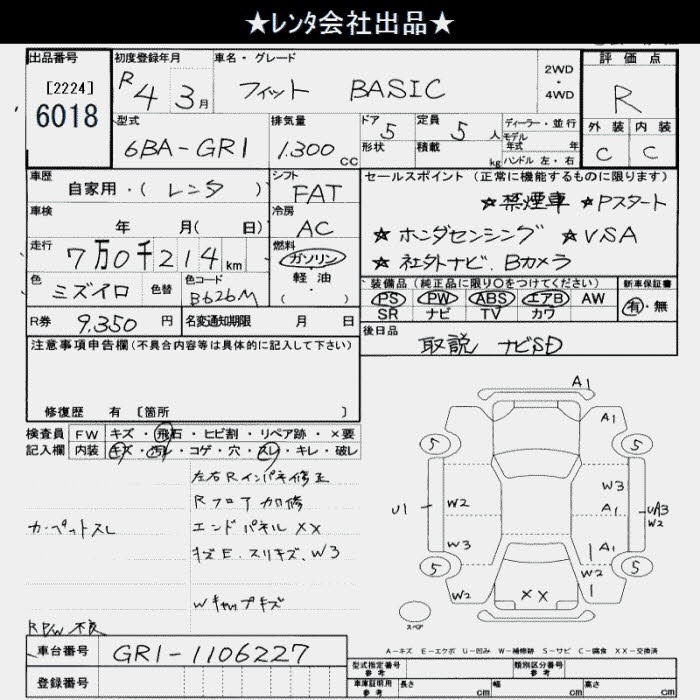 ★レンタ会社出品★
出品番号
[2224]
6018
初度登録年月
R4 3月
車名・グレード
フィット BASIC
2WD
・
4WD
評価点
R
外装 内装
C C
型式
6BA-GR1
排気量
1.300 cc
ドア 5
形状
定員 5 人
積載 kg
ディーラー・並行
モデル
年式 年
ハンドル 左・右
車歴
自家用・(レンタ)
シフト
FAT
車検
年 月( 日)
冷房
AC
走行
7万0千214km
燃料
ガソリン
・
軽油
( )
色
ミズイロ
色替
色コード
B626M
R券 9.350 円
名変通知期限 月 日
セールスポイント (正常に機能するものに限ります)
★禁煙車 ★Pスタート
★ホンダセンシング ★VSA
★社外ナビ、Bカメラ
装備品 (純正品に限り○をつけてください)
PS PW ABS エアB AW
SR ナビ TV カワ
新車保証書
有・無
後日品
取説 ナビSD
注意事項申告欄(不具合内容等は具体的に記入して下さい)
修復歴 有 〔箇所 〕
検査員
記入欄
FW キズ・飛石・ヒビ割・リペア跡・×要
内装 キズ・汚レ・コゲ・穴・スレ・キレ・破レ
左右Rインパネ修正
Rフロア加修
カーペットスレ
エンドパネルXX
キズE、スリキズ、W3
Wキャップキズ
RPW不良
A1
A1
5 5
W3
U1 W2 A1 UA3
W2
W3 A1
5 W2 5
W2 XX 1
スペア
A-キズ E-エクボ U-凹み W-補修跡 S-サビ C-腐食 XX-交換済
車台番号 GR1-1106227
登録番号
型式指定番号
参考
類別区分番号
参考
車庫証明用
参考
長さ cm 幅 cm 高さ cm